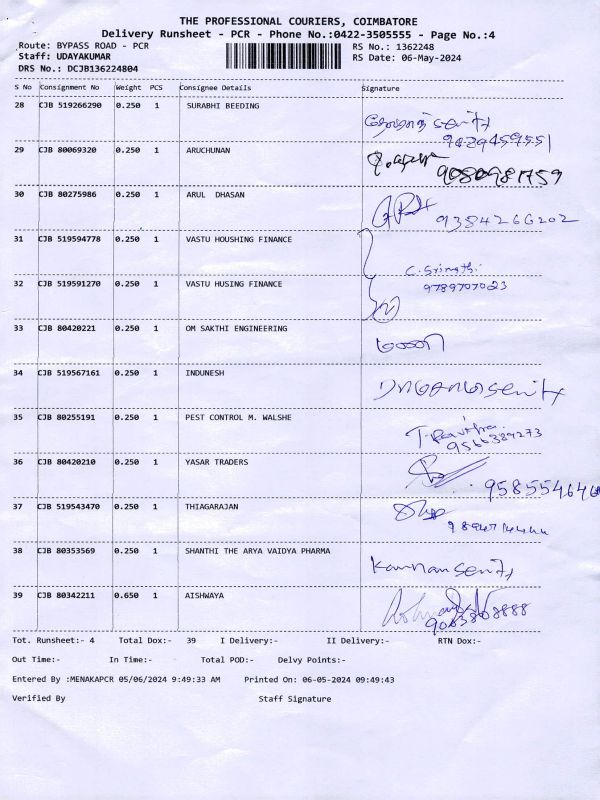 THE PROFESSIONAL COURIERS, COIMBATORE
Delivery Runsheet - PCR - Phone No.:0422-3505555 - Page No.:4
Route: BYPASS ROAD - PCR RS No.: 1362248
Staff: UDAYAKUMAR RS Date: 06-May-2024
DRS No.: DCJB136224804
S No Consignment No Weight PCS Consignee Details Signature
28 CJB 519266290 0.250 1 SURABHI BEEDING
29 CJB 80069320 0.250 1 ARUCHUNAN
9080981759
30 CJB 80275986 0.250 1 ARUL DHASAN
9384266202
31 CJB 519594778 0.250 1 VASTU HOUSHING FINANCE
C. Srimathi
32 CJB 519591270 0.250 1 VASTU HUSING FINANCE
9789707023
33 CJB 80420221 0.250 1 OM SAKTHI ENGINEERING
34 CJB 519567161 0.250 1 INDUNESH
35 CJB 80255191 0.250 1 PEST CONTROL M. WALSHE
36 CJB 80420210 0.250 1 YASAR TRADERS
37 CJB 519543470 0.250 1 THIAGARAJAN
38 CJB 80353569 0.250 1 SHANTHI THE ARYA VAIDYA PHARMA
Kannan
39 CJB 80342211 0.650 1 AISHWAYA
Tot. Runsheet:- 4 Total Dox:- 39 I Delivery:- II Delivery:- RTN Dox:-
Out Time:- In Time:- Total POD:- Delvy Points:-
Entered By :MENAKAPCR 05/06/2024 9:49:33 AM Printed On: 06-05-2024 09:49:43
Verified By Staff Signature